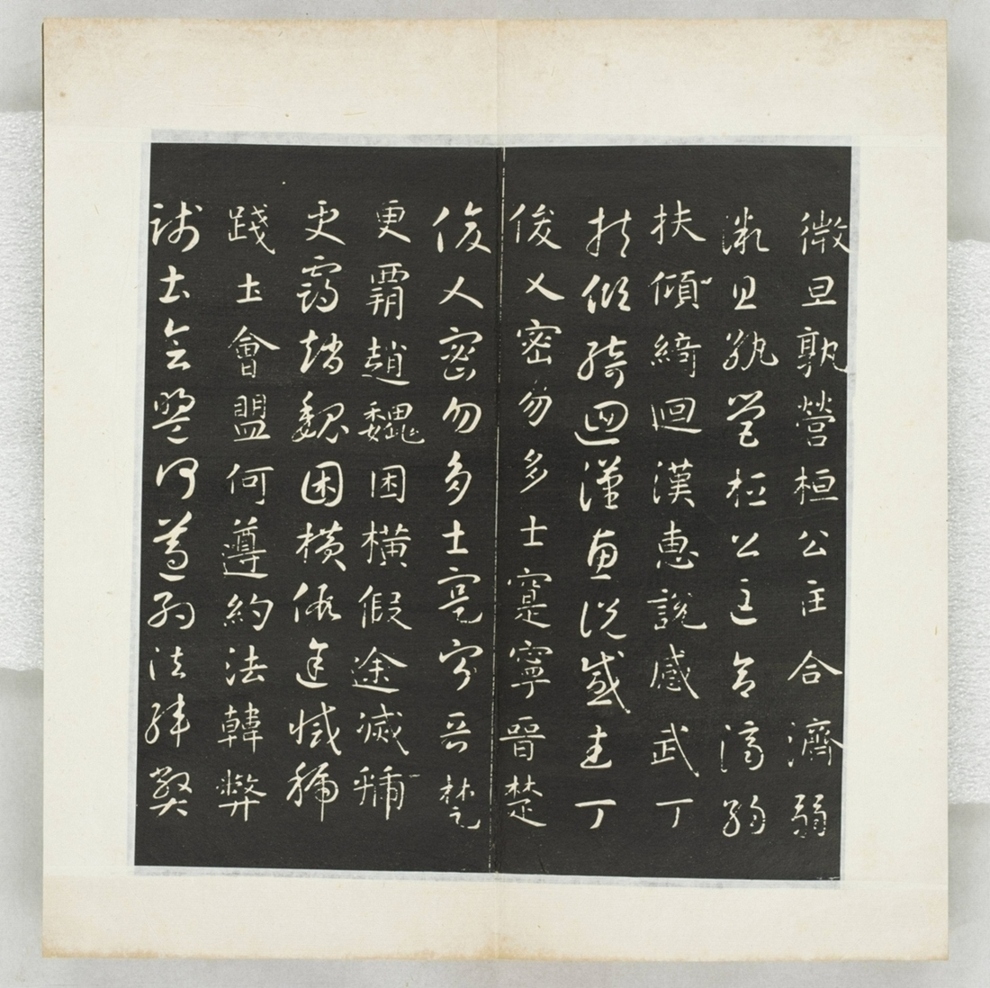 微旦孰營桓公匡合濟弱
微旦孰營桓公匡合濟弱
扶傾綺迴漢惠說感武丁
扶傾綺迴漢惠說感武丁
俊乂密勿多士寔寧晉楚
俊乂密勿多士寔寧晉楚
更霸趙魏困橫假途滅虢
更霸趙魏困橫假途滅虢
踐土會盟何遵約法韓弊
踐土會盟何遵約法韓弊